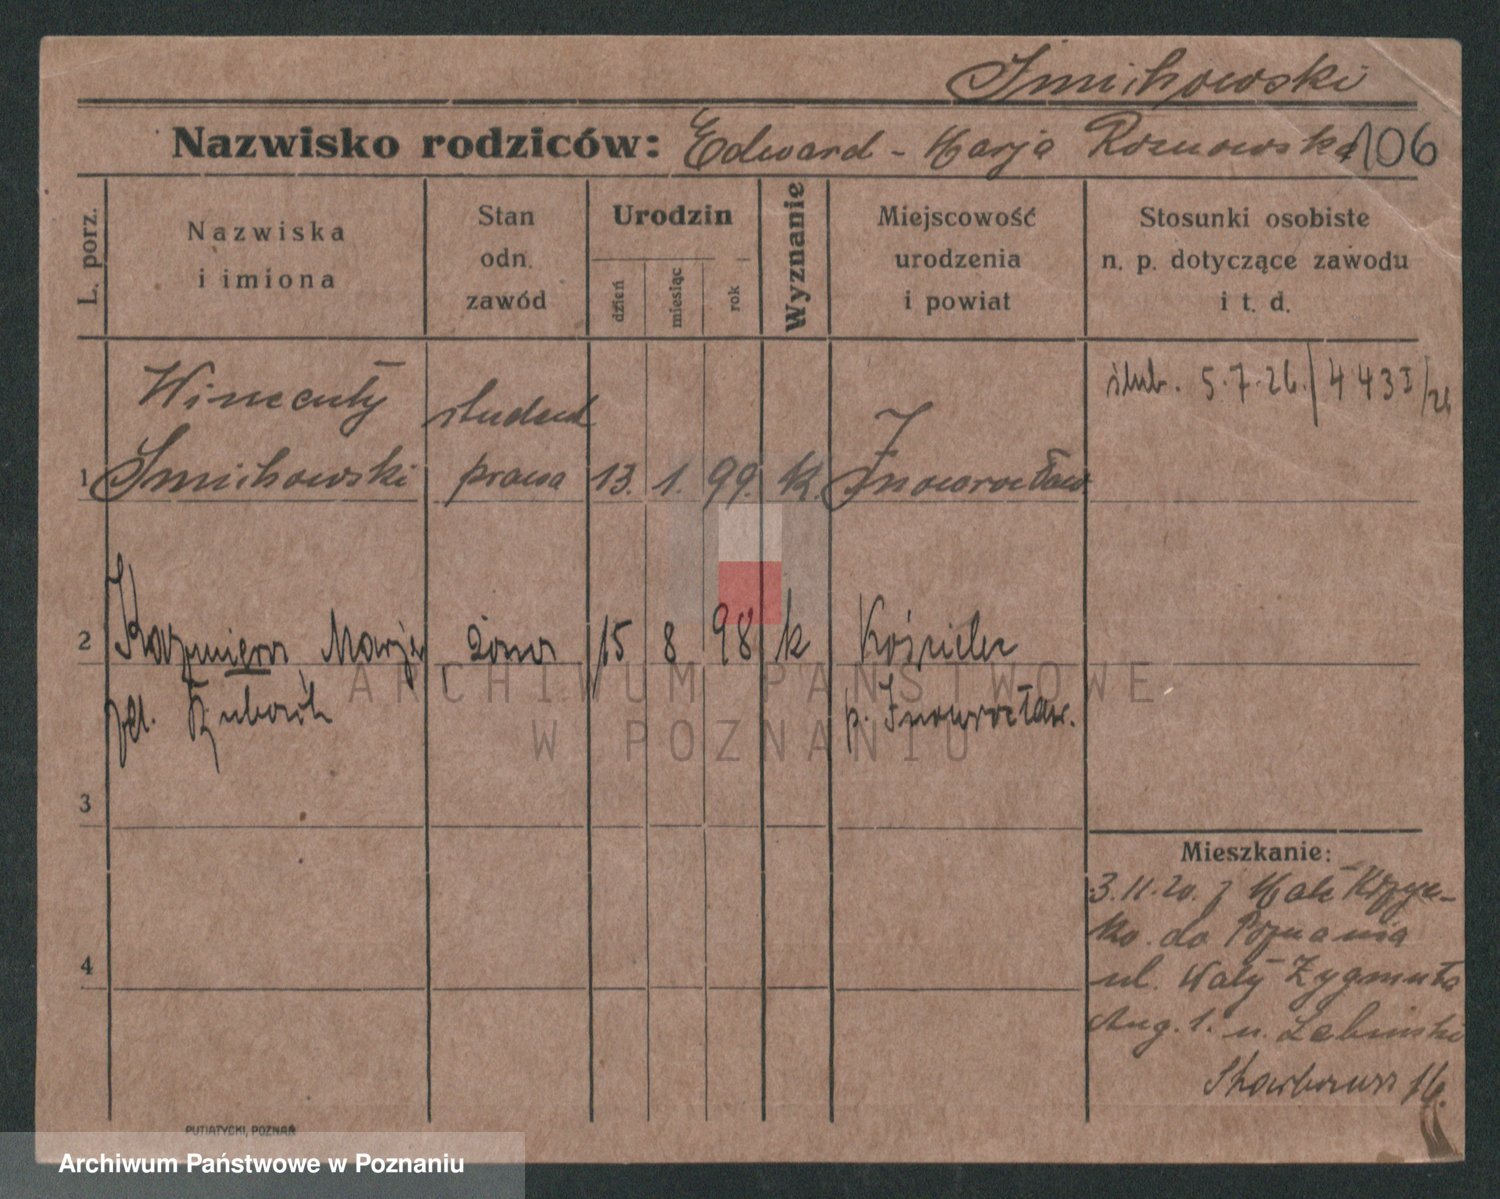 Smichowski
Nazwisko rodziców: Edward - Marja Roznowska 106
L. porz.
Nazwiska
i imiona
Stan
odn.
zawód
Urodzin
dzień
miesiąc
rok
Wyznanie
Miejscowość
urodzenia
i powiat
Stosunki osobiste
n. p. dotyczące zawodu
i t. d.
ślub. 5.7.26. / 443 I/26
Wincenty student
1 Smichowski prawa 13. 1. 99. k. Inowrocław
2 Kazmiera Marja żona 15 8 98 k Kościelec
p. Inowrocław.
3
4
Mieszkanie:
3.11.20. z
ko. do Poznania
ul. Wały Zygmunta
Aug. 1. u.
16.
PUTIATYCKI, POZNAŃ
ARCHIWUM PAŃSTWOWE
W POZNANIU
Archiwum Państwowe w Poznaniu